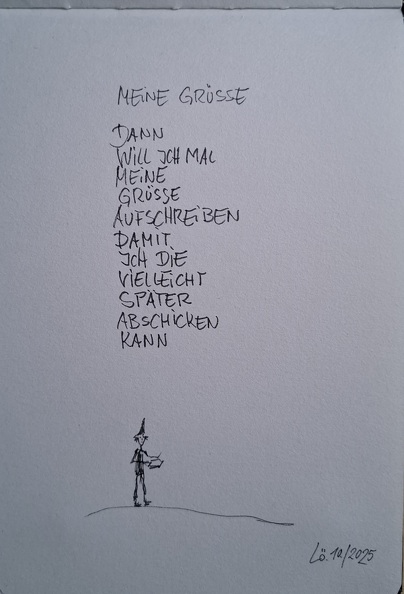 MEINE GRÜSSE
DANN
WILL ICH MAL
MEINE
GRÜSSE
AUFSCHREIBEN
DAMIT
ICH DIE
VIELLEICHT
SPÄTER
ABSCHICKEN
KANN
Lö. 10/2025